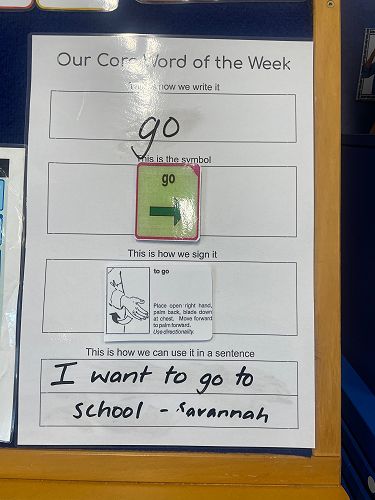 Our Core Word of the Week
This is how we write it
go
This is the symbol
go
This is how we sign it
to go
Place open right hand,
palm back, blade down
at chest. Move forward
to palm forward.
Use directionality.
This is how we can use it in a sentence
I want to go to
school - Savannah